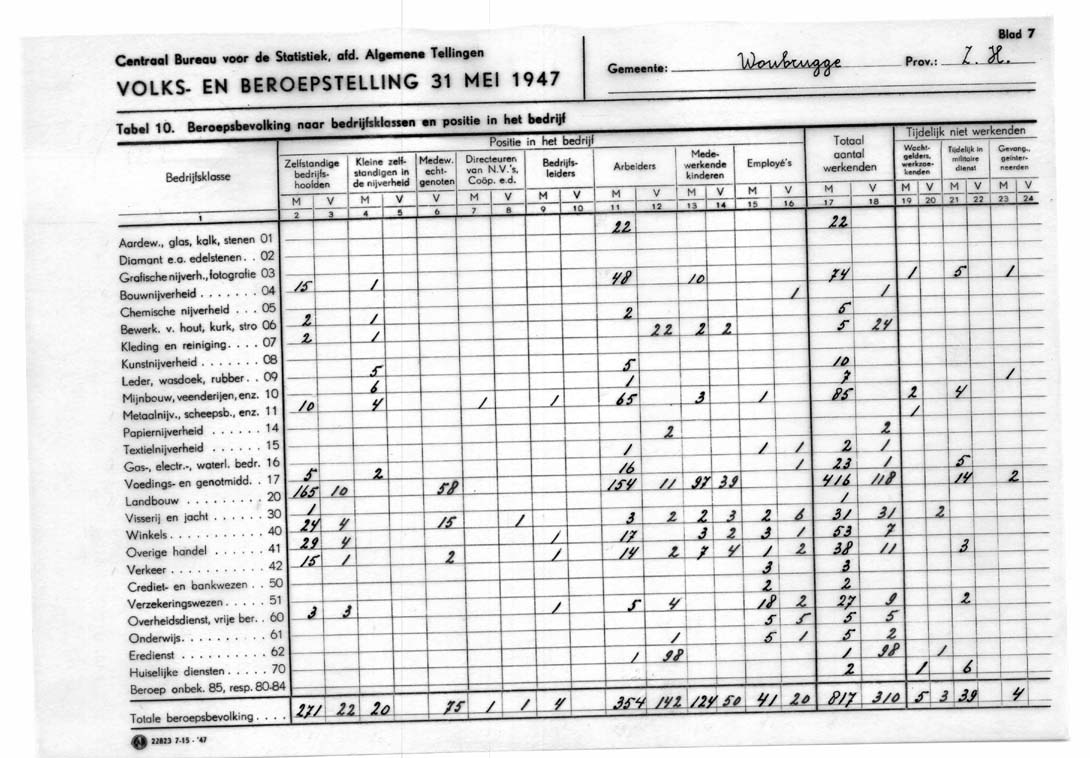 Blad 7
Centraal Bureau voor de Statistiek, afd. Algemene Tellingen
VOLKS- EN BEROEPSTELLING 31 MEI 1947
Gemeente: Woubrugge Prov.: Z. H.
Tabel 10. Beroepsbevolking naar bedrijfsklassen en positie in het bedrijf
Bedrijfsklasse Positie in het bedrijf Totaal aantal werkenden Tijdelijk niet werkenden
Zelfstandige bedrijfs-hoofden Kleine zelf-standigen in de nijverheid Medew. echt-genoten Directeuren van N.V.'s, Coöp. e.d. Bedrijfs-leiders Arbeiders Mede-werkende kinderen Employé's Wacht-gelders, werkzoe-kenden Tijdelijk in militaire dienst Gevang., geïnter-neerden
M V M V V M V M V M V M V M V M V M V M V M V
1 2 3 4 5 6 7 8 9 10 11 12 13 14 15 16 17 18 19 20 21 22 23 24
Aardew., glas, kalk, stenen 01 22 22
Diamant e.a. edelstenen . . 02
Grafische nijverh., fotografie 03
Bouwnijverheid . . . . . . . 04 15 1 48 10 74 1 5 1
Chemische nijverheid . . . 05 1 1
Bewerk. v. hout, kurk, stro 06 2 1 2 5
Kleding en reiniging. . . . . 07 2 1 22 2 2 5 24
Kunstnijverheid . . . . . . . 08
Leder, wasdoek, rubber . . 09 5 5 10
Mijnbouw, veenderijen, enz. 10 6 1 7 1
Metaalnijv., scheepsb., enz. 11 10 4 1 1 65 3 1 85 2 4
Papiernijverheid . . . . . . 14 1
Textielnijverheid . . . . . . 15 2 2
Gas-, electr.-, waterl. bedr. 16 1 1 1 2 1
Voedings- en genotmidd. . 17 5 2 16 1 23 1 5
Landbouw . . . . . . . . . 20 165 10 58 154 11 97 39 416 118 14 2
Visserij en jacht . . . . . . 30 1 1
Winkels . . . . . . . . . . . 40 24 4 15 1 3 2 2 3 2 6 31 31 2
Overige handel . . . . . . 41 29 4 1 17 3 2 3 1 53 7
Verkeer . . . . . . . . . . . 42 15 1 2 1 14 2 7 4 1 2 38 11 3
Crediet- en bankwezen . . 50 3 3
Verzekeringswezen . . . . . 51 2 2
Overheidsdienst, vrije ber. . 60 3 3 1 5 4 18 2 27 9 2
Onderwijs. . . . . . . . . . 61 5 5 5 5
Eredienst . . . . . . . . . . 62 1 5 1 5 2
Huiselijke diensten . . . . . 70 1 98 1 98 1
Beroep onbek. 85, resp. 80-84 2 1 6
Totale beroepsbevolking . . . . 271 22 20 75 1 1 4 354 142 124 50 41 20 817 310 5 3 39 4
22823 7-15 - '47